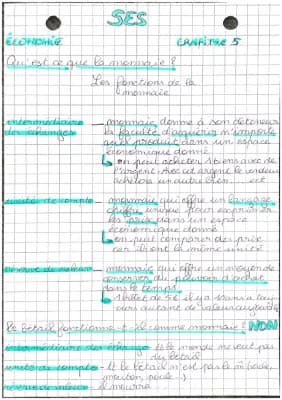 SES
ÉCONOMIE CHAPITRE 5
Qu'est ce que la monnaie ?
Les fonctions de la
monnaie
intermédiaire — monnaie donne à son détenteur
des échanges la faculté d'acquérir n'importe
quel produit dans un espace
économique donné
↳ on peut acheter biens avec de
l'argent. Avec cet argent le vendeur
achètera un autre bien
unité de compte — monnaie qui offre un langage
chiffré unique pour exprimer
les prix dans un espace
économique donné
↳ on peut comparer des prix
car ils ont la même unité
réserve de valeur — monnaie qui offre un moyen de
conserver du pouvoir d'achat
dans le temps
↳ 1 billet de 5€ il y a
autant de valeur aujourd'hui
le bétail fonctionne-t-il comme monnaie ? NON
intermédiaire des échanges - tt le monde ne veut pas
du bétail
unité de compte - tt le bétail n'est pas le m̂
mouton, poule
réserve de valeur - il mourra